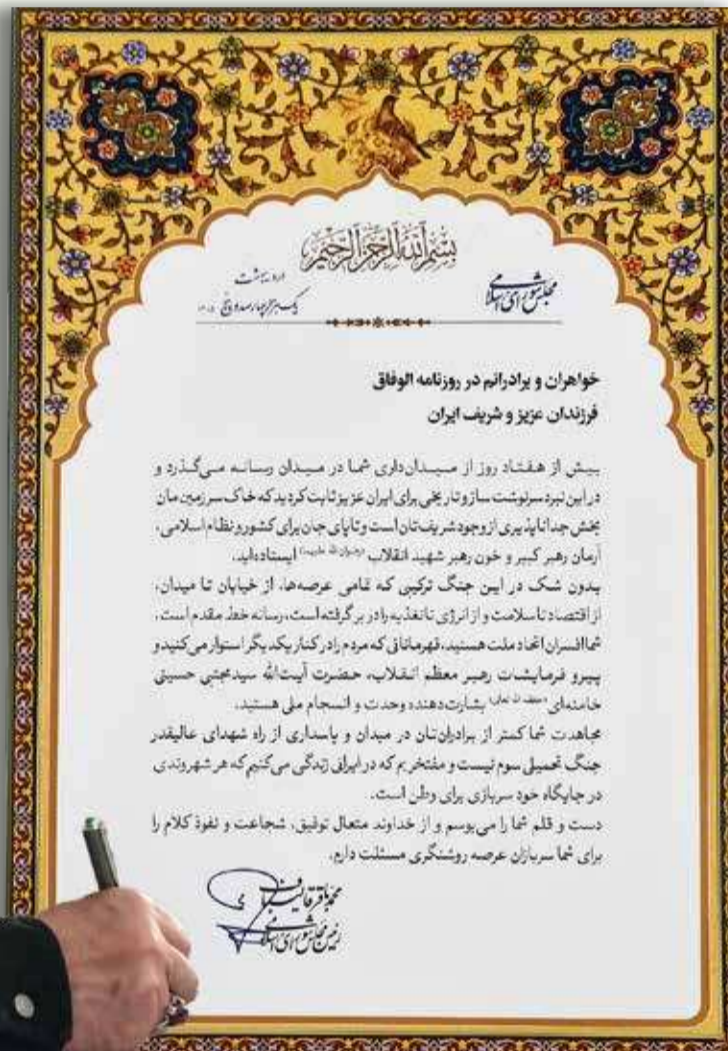 بسم الله الرحمن الرحیم
مجلس شورای اسلامی
اردیبهشت
یک هزار و چهارصد و پنج ۱۴۰۵
خواهران و برادرانم در روزنامه الوفاق
فرزندان عزیز و شریف ایران
بیش از هفتاد روز از میدان‌داری شما در میدان رسانه می‌گذرد و
در این نبرد سرنوشت ساز و تاریخی برای ایران عزیز ثابت کردید که خاک سرزمین مان
بخش جدانا‌پذیری از وجود شریف‌تان است و تا پای جان برای کشور و نظام اسلامی،
آرمان رهبر کبیر و خون رهبر شهید انقلاب (رضوان الله علیهما) ایستاده‌اید.
بدون شک در این جنگ ترکیبی که تمامی عرصه‌ها، از خیابان تا میدان،
از اقتصاد تا سلامت و از انرژی تا تغذیه را در بر گرفته است، رسانه خط مقدم است،
شما افسران اتحاد ملت هستید، قهرمانانی که مردم را در کنار یکدیگر استوار می‌کنید و
پیرو فرمایشات رهبر معظم انقلاب، حضرت آیت‌الله سیدمجتبی حسینی
خامنه‌ای (حفظه الله تعالی) بشارت‌دهنده وحدت و انسجام ملی هستید.
مجاهدت شما کمتر از برادران‌تان در میدان و پاسداری از راه شهدای عالیقدر
جنگ تحمیلی سوم نیست و مفتخریم که در ایرانی زندگی می‌کنیم که هر شهروندی
در جایگاه خود سربازی برای وطن است.
دست و قلم شما را می‌بوسم و از خداوند متعال توفیق، شجاعت و نفوذ کلام را
برای شما سربازان عرصه روشنگری مسئلت دارم.
محمدباقر قالیباف
رئیس مجلس شورای اسلامی